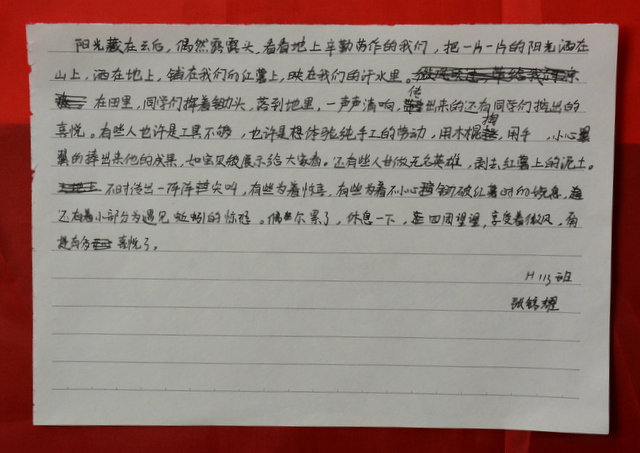 阳光藏在云后，偶然露露头，看看地上辛勤劳作的我们，把一片一片的阳光洒在
山上，洒在地上，铺在我们的红薯上，映在我们的汗水里。
在田里，同学们挥着锄头，落到地里，一声声清响，传出来的还有同学们挖出的
喜悦。有些人也许是工具不够，也许是想体验纯手工的劳动，用木棍掏，用手，小心翼
翼的捧出来他的成果，如宝贝般展示给大家看。还有些人甘做无名英雄，剥去红薯上的泥土。
不时传出一阵阵尖叫，有些为着惊喜，有些为着不小心锄破红薯时的
还有着小部分为遇见蚯蚓的惊呼。偶尔累了，休息一下，四周望望，享受着微风，
喜悦了。
H113班
张锦耀